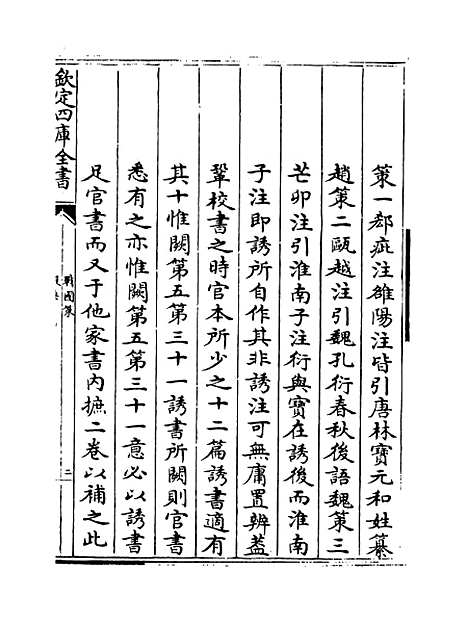 策一郄疵注雒陽注皆引唐林寶元和姓纂
趙策二甌越注引魏孔衍春秋後語魏策三
芒卯注引淮南子注衍與寶在誘後而淮南
子注即誘所自作其非誘注可無庸置辨蓋
鞏校書之時官本所少之十二篇誘書適有
其十惟闕第五第三十一誘書所闕則官書
悉有之亦惟闕第五第三十一意必以誘書
足官書而又于他家書內摭二卷以補之此
欽定四庫全書
戰國策
二